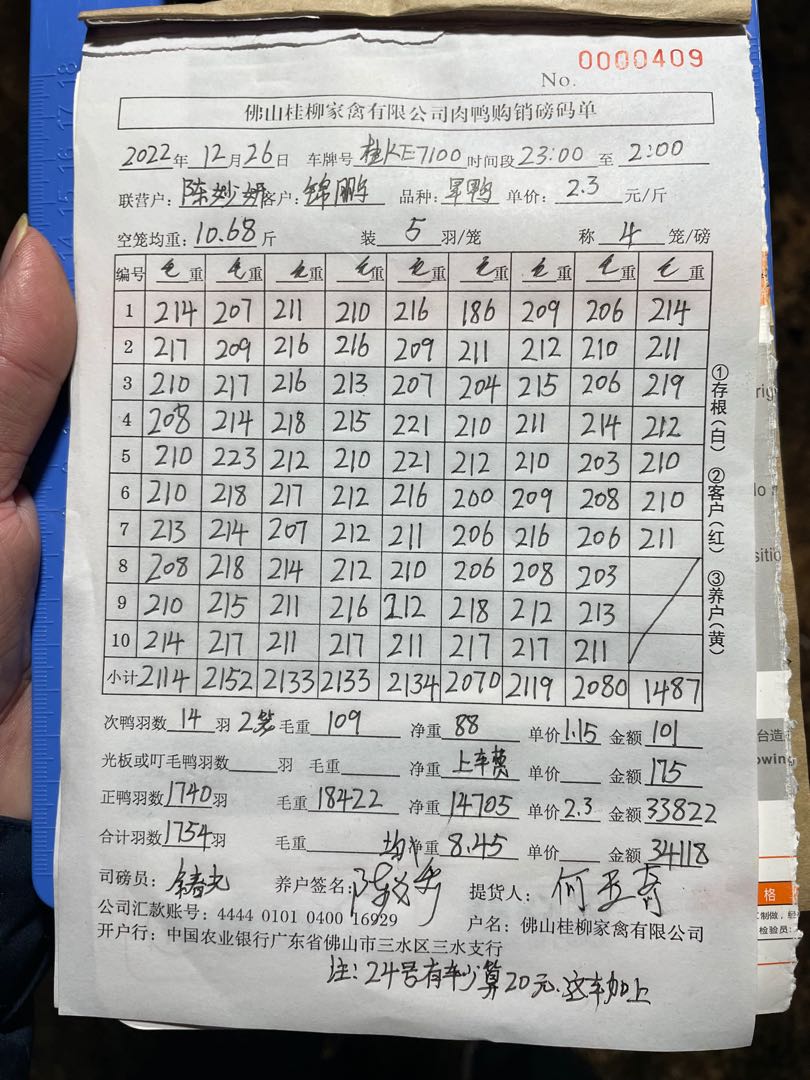 0000409
No.
佛山桂柳家禽有限公司肉鸭购销磅码单
2022年12月26日 车牌号 桂KE7100 时间段 23:00 至 2:00
联营户：陈妙妍 客户：锦鹏 品种：旱鸭 单价：2.3 元/斤
空笼均重：10.68斤 装 5 羽/笼 称 4 笼/磅
编号 毛重 毛重 毛重 毛重 毛重 毛重 毛重 毛重 毛重
1 214 207 211 210 216 186 209 206 214
2 217 209 216 216 209 211 212 210 211
3 210 217 216 213 207 204 215 206 219
4 208 214 218 215 221 210 211 214 212
5 210 223 212 210 221 212 210 203 210
6 210 218 217 212 216 200 209 208 210
7 213 214 207 212 211 206 216 206 211
8 208 218 214 212 210 206 208 203
9 210 215 211 216 212 218 212 213
10 214 217 211 217 211 217 217 211
小计 2114 2152 2133 2133 2134 2070 2119 2080 1487
①存根（白） ②客户（红） ③养户（黄）
次鸭羽数 14 羽 2笼 毛重 109 净重 88 单价 1.15 金额 101
光板或叮毛鸭羽数 羽 毛重 净重 上车费 单价 金额 175
正鸭羽数 1740 羽 毛重 18422 净重 14705 单价 2.3 金额 33822
合计羽数 1754 羽 毛重 均 净重 8.45 单价 金额 34118
司磅员： 养户签名： 提货人：
公司汇款账号：4444 0101 0400 16929 户名：佛山桂柳家禽有限公司
开户行：中国农业银行广东省佛山市三水区三水支行
注：24号有车少算20元.这车加上
台造
格
检验员：
18
17
16
15
14